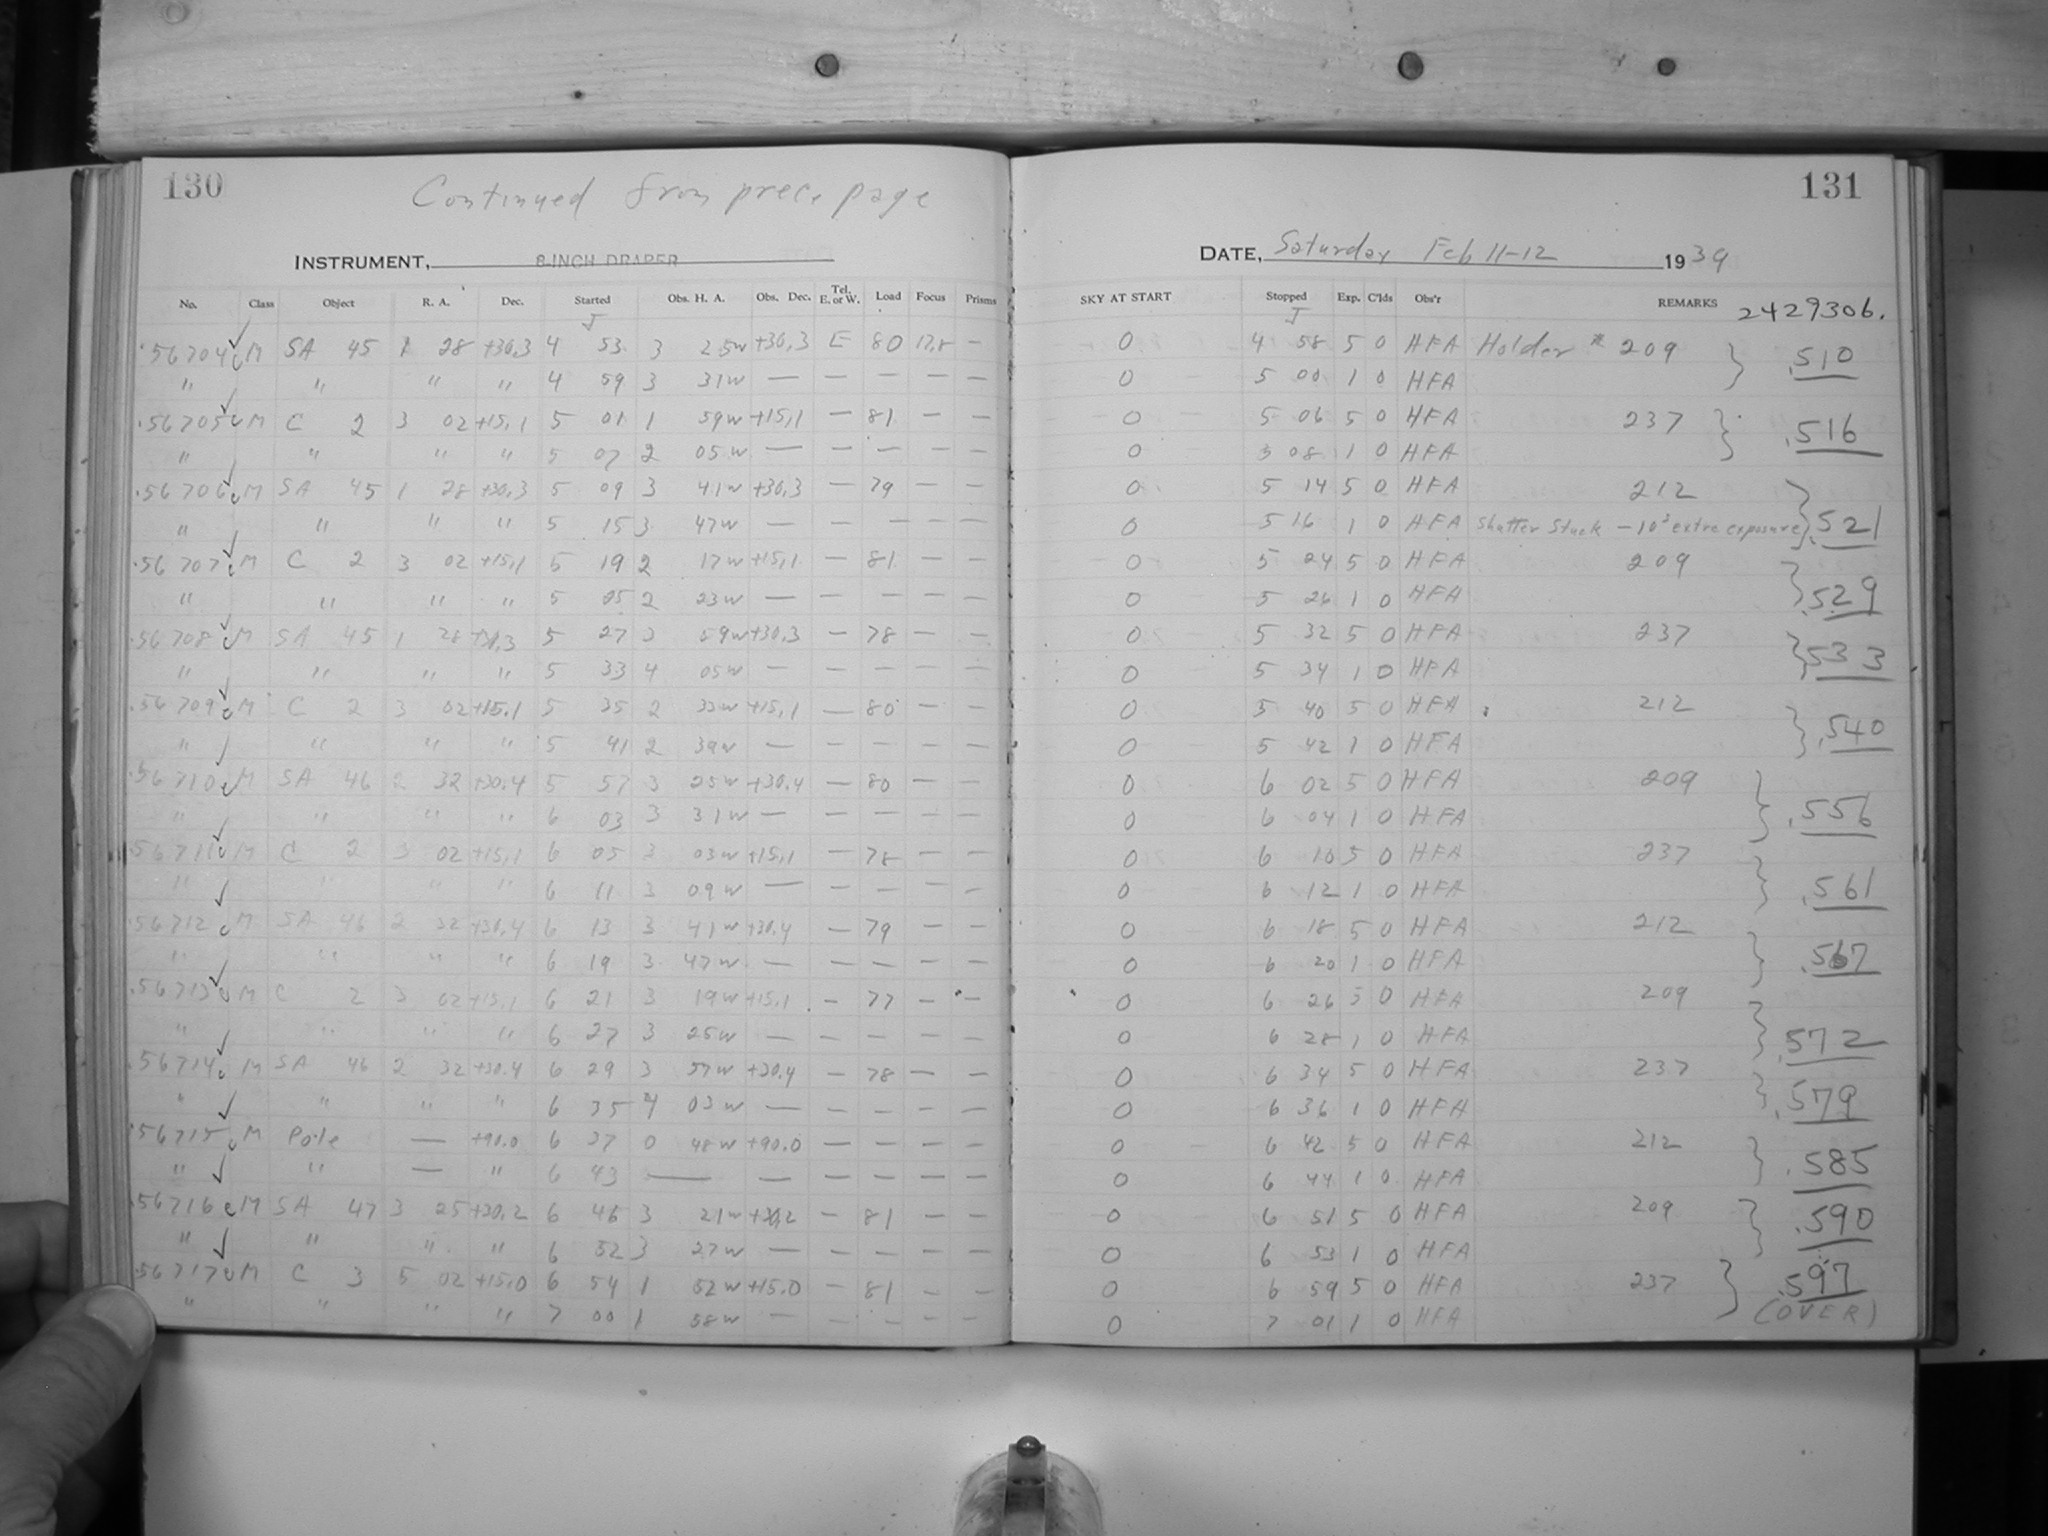 130
Continued from prec. page
INSTRUMENT, 8-INCH DRAPER
No. Class Object R. A. Dec. Started Obs. H. A. Obs. Dec. Tel. E. or W. Load Focus Prisms
J
56704 M SA 45 1 28 +30.3 4 53 3 25w +30.3 E 80 12.8 —
" " " " 4 59 3 31w — — — — —
56705 M C 2 3 02 +15.1 5 01 1 59w +15.1 — 81 — —
" " " " 5 07 2 05w — — — — —
56706 M SA 45 1 28 +30.3 5 09 3 41w +30.3 — 79 — —
" " " " 5 15 3 47w — — — — —
56707 M C 2 3 02 +15.1 5 19 2 17w +15.1 — 81 — —
" " " " 5 25 2 23w — — — — —
56708 M SA 45 1 28 +30.3 5 27 3 59w +30.3 — 78 — —
" " " " 5 33 4 05w — — — — —
56709 M C 2 3 02 +15.1 5 35 2 33w +15.1 — 80 — —
" " " " 5 41 2 39w — — — — —
56710 M SA 46 2 32 +30.4 5 57 3 25w +30.4 — 80 — —
" " " " 6 03 3 31w — — — — —
56711 M C 2 3 02 +15.1 6 05 3 03w +15.1 — 78 — —
" " " " 6 11 3 09w — — — — —
56712 M SA 46 2 32 +30.4 6 13 3 41w +30.4 — 79 — —
" " " " 6 19 3 47w — — — — —
56713 M C 2 3 02 +15.1 6 21 3 19w +15.1 — 77 — —
" " " " 6 27 3 25w — — — — —
56714 M SA 46 2 32 +30.4 6 29 3 57w +30.4 — 78 — —
" " " " 6 35 4 03w — — — — —
56715 M Pole — +90.0 6 37 0 48w +90.0 — — — —
" " — " 6 43 — — — — — —
56716 M SA 47 3 25 +30.2 6 46 3 21w +30.2 — 81 — —
" " " " 6 52 3 27w — — — — —
56717 M C 3 5 02 +15.0 6 54 1 52w +15.0 — 81 — —
" " " " 7 00 1 58w — — — — —
131
DATE, Saturday Feb 11-12 1939
SKY AT START Stopped Exp. C'lds Obs'r REMARKS 2429306.
J
0 4 58 5 0 HFA Holder # 209 .510
0 5 00 1 0 HFA
0 5 06 5 0 HFA 237 .516
0 5 08 1 0 HFA
0 5 14 5 0 HFA 212
0 5 16 1 0 HFA Shutter Stuck — 10s extra exposure .521
0 5 24 5 0 HFA 209
0 5 26 1 0 HFA .529
0 5 32 5 0 HFA 237
0 5 34 1 0 HFA .533
0 5 40 5 0 HFA 212
0 5 42 1 0 HFA .540
0 6 02 5 0 HFA 209
0 6 04 1 0 HFA .556
0 6 10 5 0 HFA 237
0 6 12 1 0 HFA .561
0 6 18 5 0 HFA 212
0 6 20 1 0 HFA .567
0 6 26 5 0 HFA 209
0 6 28 1 0 HFA .572
0 6 34 5 0 HFA 237
0 6 36 1 0 HFA .579
0 6 42 5 0 HFA 212
0 6 44 1 0 HFA .585
0 6 51 5 0 HFA 209 .590
0 6 53 1 0 HFA
0 6 59 5 0 HFA 237 .597
0 7 01 1 0 HFA (OVER)